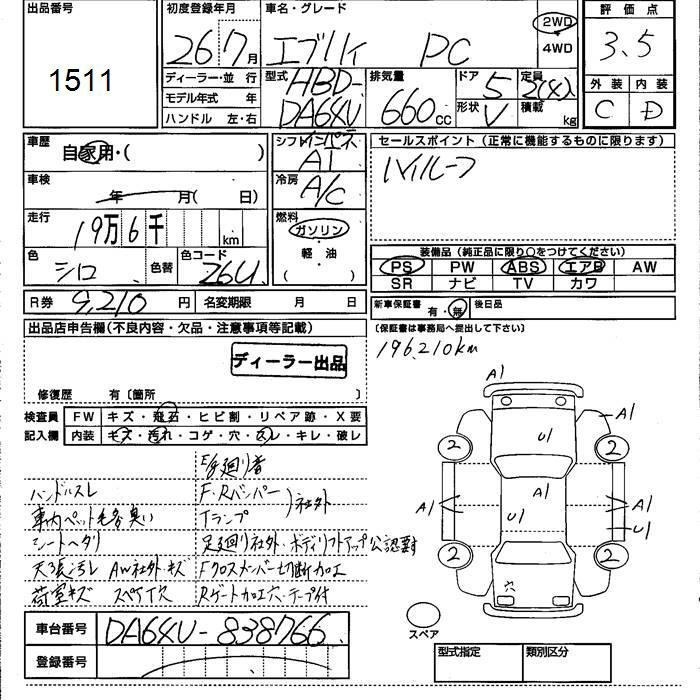 出品番号
1511
初度登録年月
26 7月
車名・グレード
エブリィ PC
2WD
4WD
評価点
3.5
外装 内装
C D
ディーラー・並行
モデル年式 年
ハンドル 左・右
型式 HBD-
DA64V
排気量
660cc
ドア 5
形状 V
定員 2(4)人
積載 kg
車歴
自家用・( )
車検
年 月( 日)
走行
19万6千 km
色 シロ
色替
色コード 26U
R券 9,210円
名変期限 月 日
シフト インパネ
AT
冷房
A/C
燃料
ガソリン
軽油
( )
セールスポイント(正常に機能するものに限ります)
ハイルーフ
装備品(純正品に限り○をつけてください)
PS PW ABS エアB AW
SR ナビ TV カワ
新車保証書 有・無 後日品
(保証書は事務局へ提出して下さい)
196,210km
出品店申告欄(不良内容・欠品・注意事項等記載)
ディーラー出品
修復歴 有〔箇所 〕
検査員
記入欄
FW キズ・飛石・ヒビ割・リペア跡・X要
内装 キズ・汚れ・コゲ・穴・スレ・キレ・破レ
ハンドルスレ
車内ペット毛各臭い
シートヘタリ
天張汚レ AW社外・キズ
荷室キズ スペア穴
F・Rバンパー
Tランプ
社外
足廻り社外・ボディリフトアップ公認要す
Fクロスメンバー切断加工
Rゲート加工穴・テープ付
A1
A1
U1
2
2
A1
A1
U1
A1
U1
2
2
穴
スペア
車台番号 DA64V-838766
登録番号
型式指定 類別区分